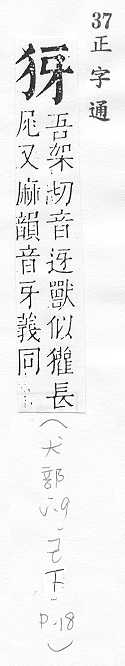 37 正字通
犽 吾架切音迓獸似獾長
尾又麻韻音牙義同
(犬部 5.9 已下 p.18)